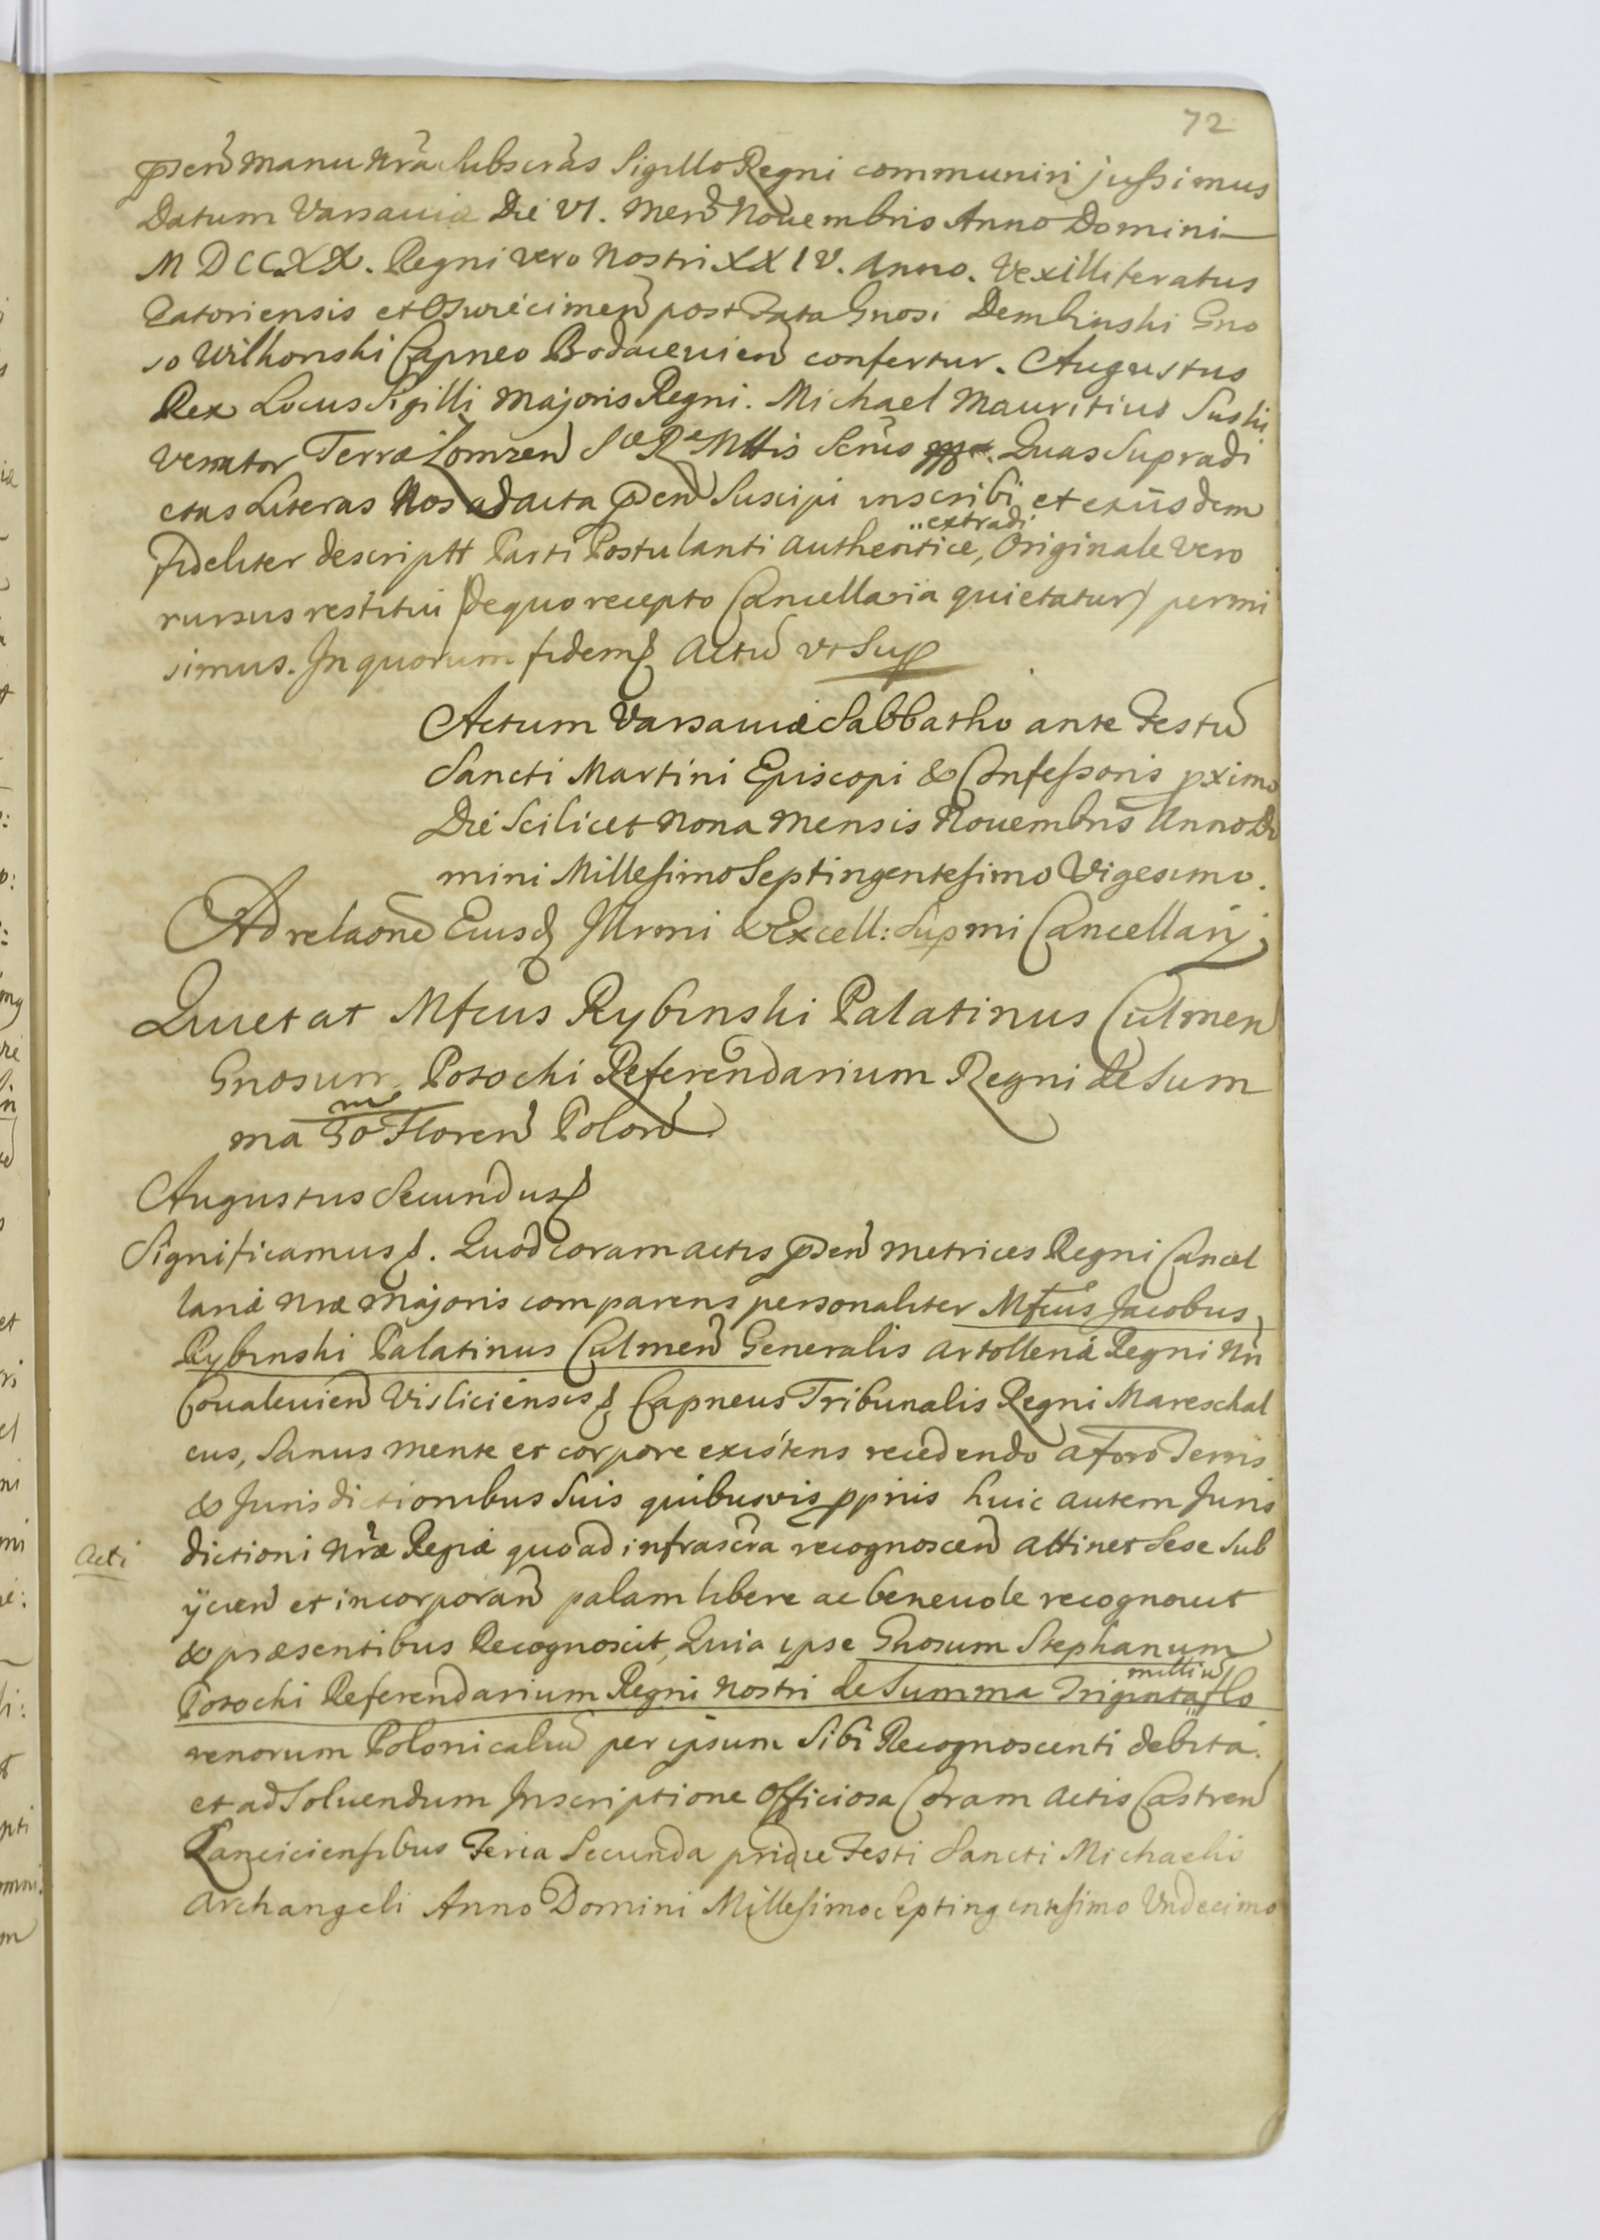 72
psen manu nra subscras Sigillo Regni communiri jussimus
Datum Varsaviæ Die VI. Men Novembris Anno Domini
MDCCXX. Regni vero nostri XXIV. Anno. Vexilliferatus
Zatoriensis et Oswiecimen post Fata Gnosi Dembinski Gno
so Wilkonski Capneo Bodacevien confertur. Augustus
Rex Locus Sigilli Majoris Regni. Michael Mauritius Suski
Venator Terræ Lomzen Sæ Ræ Mttis Scrius mp. Quas Supradi
ctas Literas Nos ad acta psen Suscipi inscribi et exiisdem
fideliter descriptt Parti Postulanti authentice, Originale vero
extradi
rursus restitui (de quo recepto Cancellaria quietatur) permi
simus. In quorum fidem Actu ut Sup
Actum Varsaviæ Sabbatho ante Festu
Sancti Martini Episcopi & Confessoris pximo
Die Scilicet Nona Mensis Novembris Anno Do
mini Millesimo Septingentesimo Vigesimo.
Ad relaone Eiusd Illrmi & Excell: Supmi Cancellarij
Quietat Mfcus Rybinski Palatinus Culmen
Gnosum Potocki Referendarium Regni de Sum
ma 30 m Floren Polon
Augustus Secundus
Significamus. Quod coram actis psen Metrices Regni Cancel
lariæ Nræ Majoris comparens personaliter Mfcus Jacobus
Rybinski Palatinus Culmen Generalis artolleriæ Regni Nri
Covalevien Visliciensis Capneus Tribunalis Regni Mareschal
cus, Sanus mente et corpore existens recedendo a Foro Terris
& Jurisdictionibus Suis quibusvis pprijs huic autem Juris
Acti
dictioni Nræ Regiæ quoad infrascra recognoscen attinet Sese Sub
ijcien et incorporan palam libere ac benevole recognovit
& præsentibus Recognoscit, Quia ipse Gnosum Stephanum
Potocki Referendarium Regni Nostri de Summa Triginta flo
milliu
renorum Polonicaliu per ipsum Sibi Recognoscenti debita
et ad Solvendum Inscriptione Officiosa Coram Actis Castren
Lanciciensibus Feria Secunda pridie Festi Sancti Michaelis
Archangeli Anno Domini Millesimo Septingentesimo Undecimo